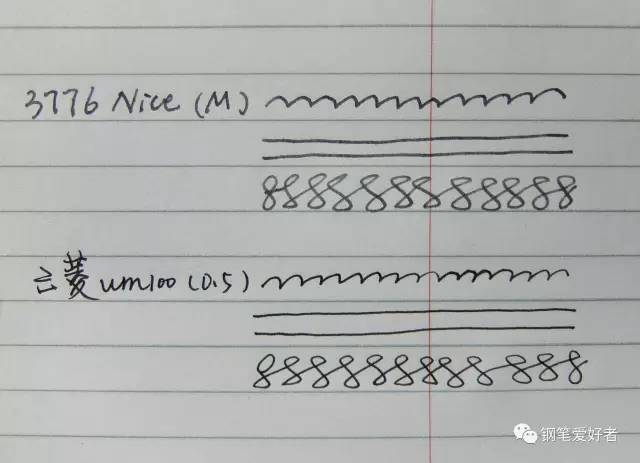 3776 Nice (M)
888888888888
三菱 um100 (0.5)
888888888888
钢笔爱好者